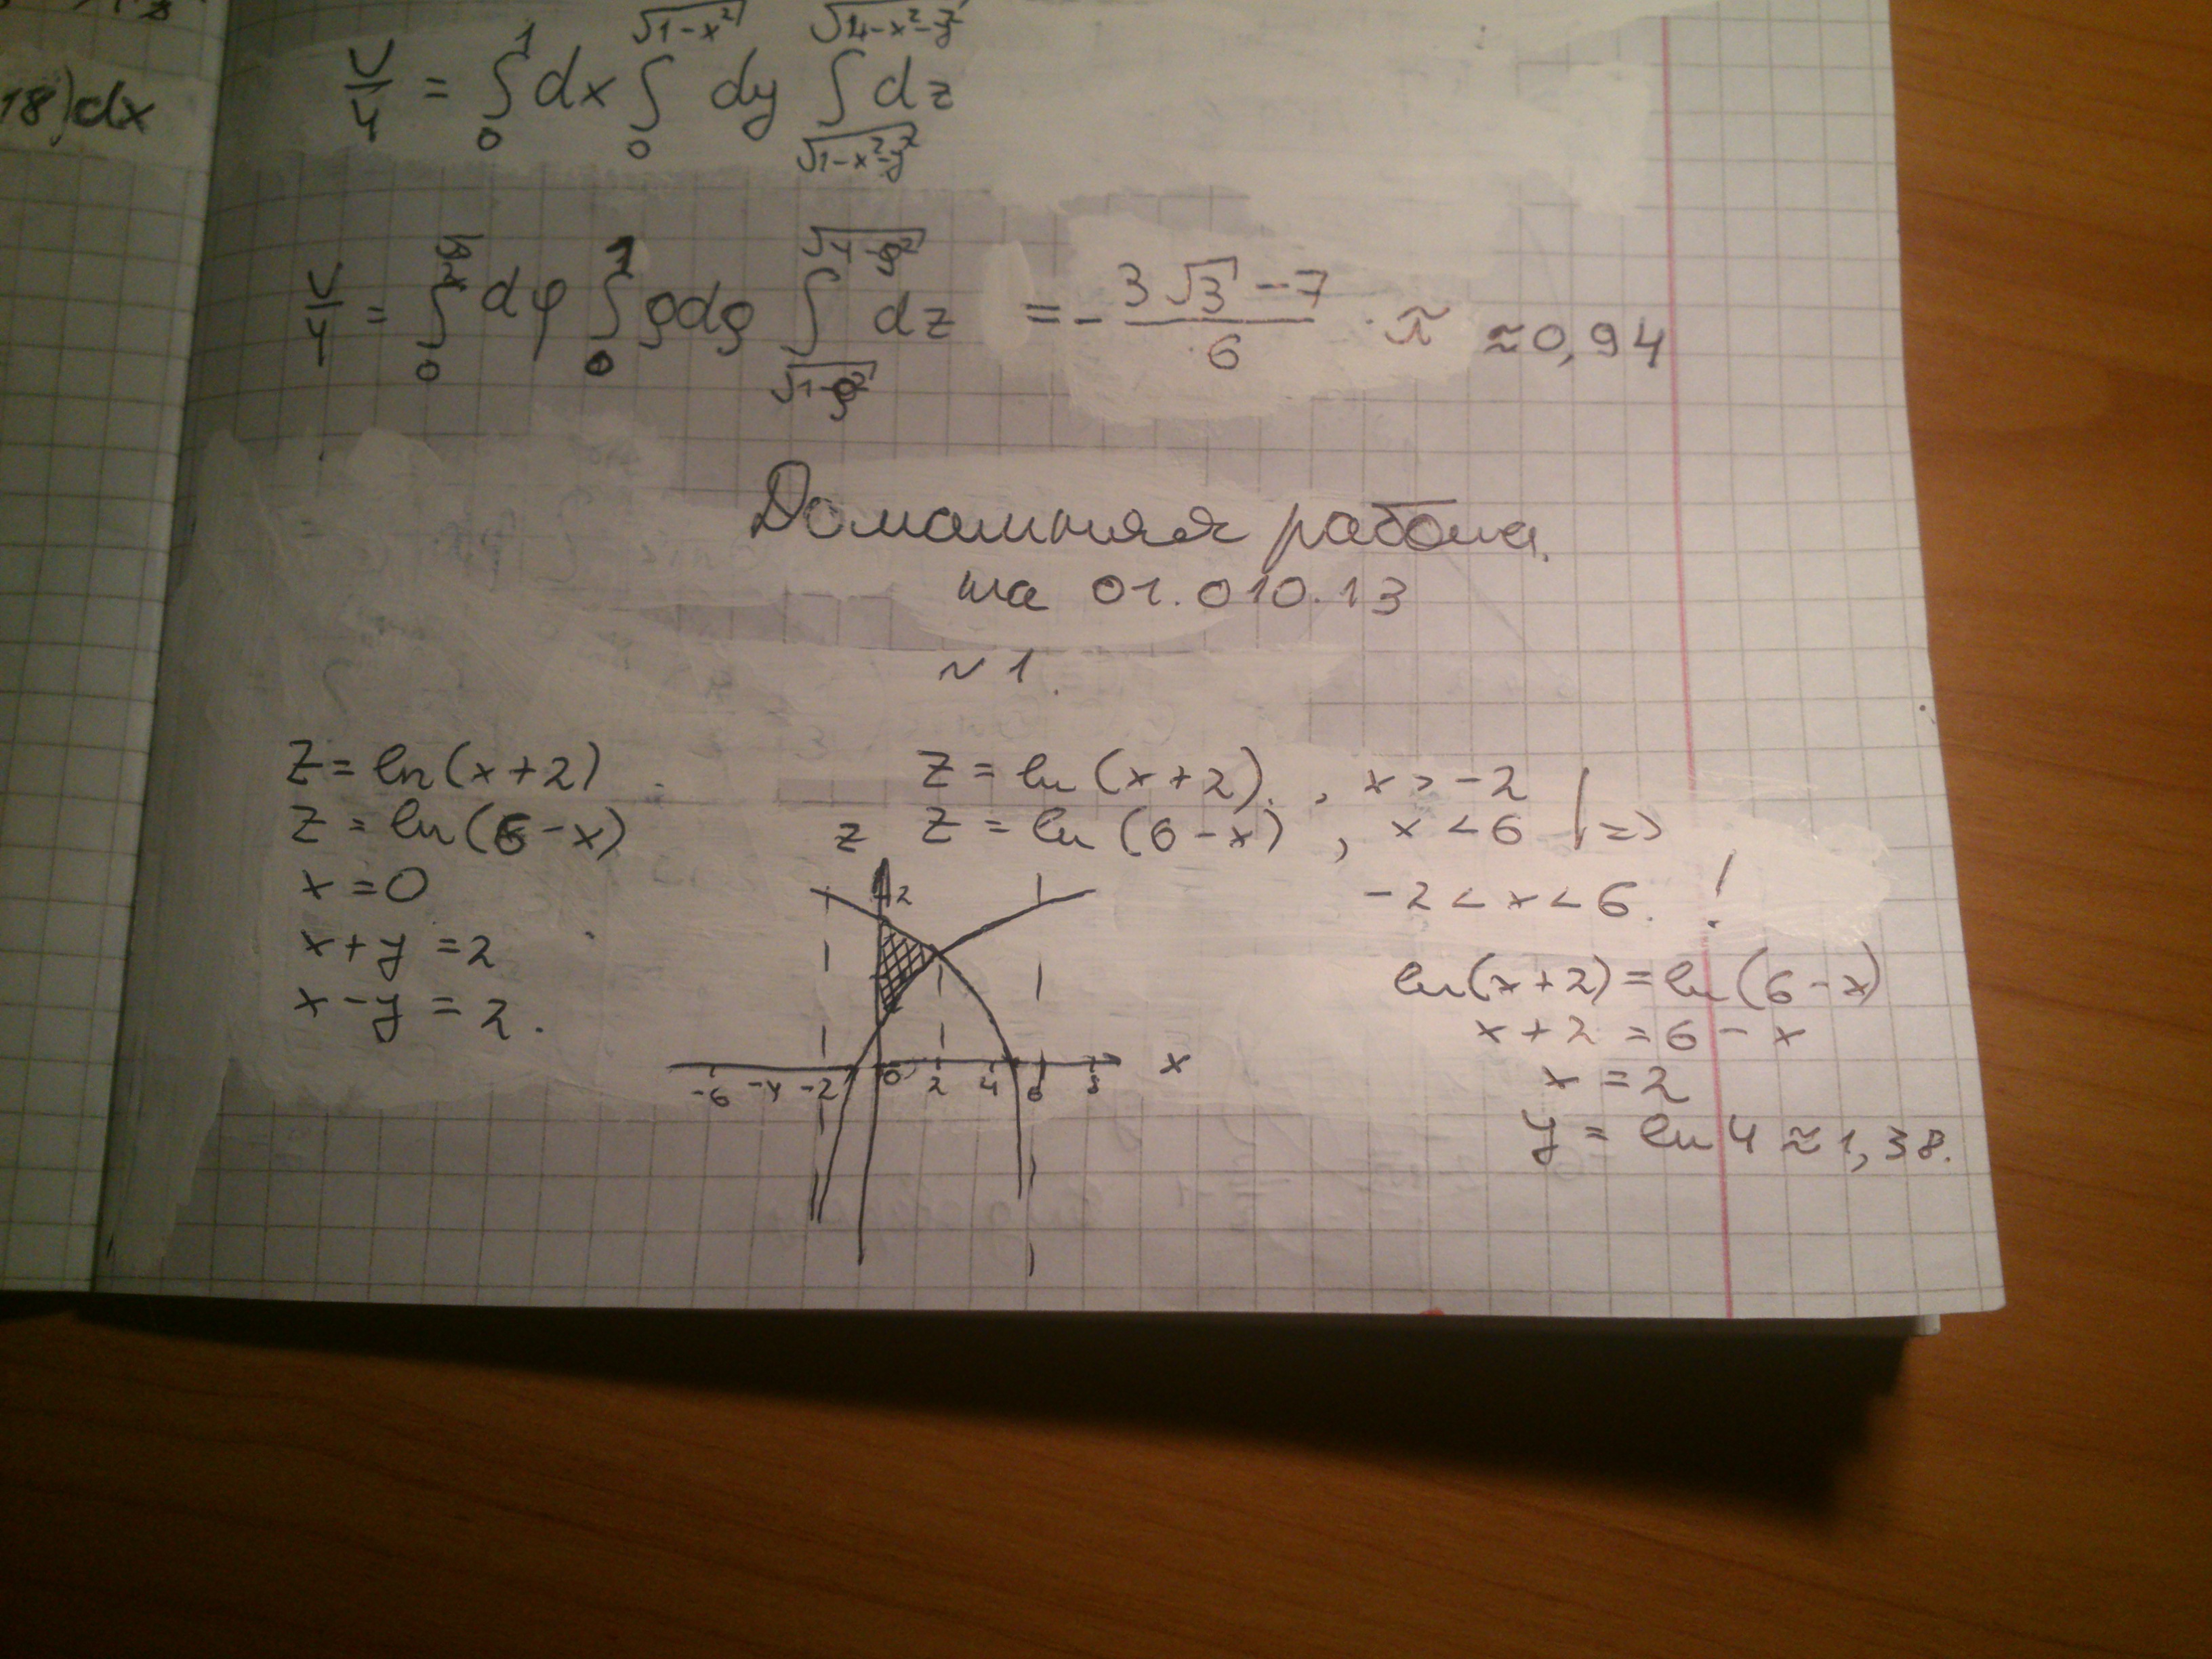 18)dx
V/4 = ∫₀¹ dx ∫₀^√(1-x²) dy ∫_√(1-x²-y²)^√(4-x²-y²) dz
V/4 = ∫₀ dφ ∫₀¹ ρdρ ∫_√(1-ρ²)^√(4-ρ²) dz = - (3√3 - 7)/6 · π ≈ 0,94
Домашняя работа.
на 01.010.13
№ 1.
z = ln(x+2)
z = ln(6-x)
x = 0
x + y = 2
x - y = 2.
z = ln(x+2), x > -2
z = ln(6-x), x < 6 | =>
-2 < x < 6. !
ln(x+2) = ln(6-x)
x + 2 = 6 - x
x = 2
y = ln 4 ≈ 1,38.
z
2
-6 -4 -2 0 2 4 6 8 x